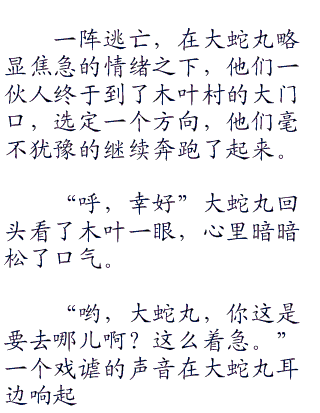 一阵逃亡，在大蛇丸略
显焦急的情绪之下，他们一
伙人终于到了木叶村的大门
口，选定一个方向，他们毫
不犹豫的继续奔跑了起来。
“呼，幸好”大蛇丸回
头看了木叶一眼，心里暗暗
松了口气。
“哟，大蛇丸，你这是
要去哪儿啊？这么着急。”
一个戏谑的声音在大蛇丸耳
边响起